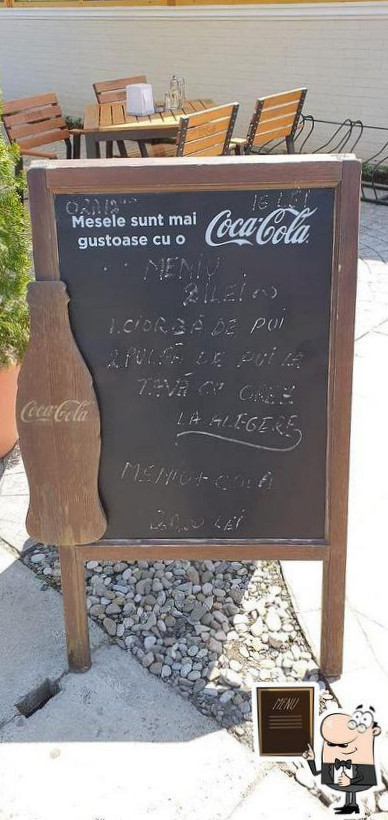 16 LEI
Mesele sunt mai
gustoase cu o
Coca-Cola
MENIU
ZILEI
1. CIORBĂ DE PUI
2. PULPĂ DE PUI LA
TAVĂ CU OREZ
LA ALEGERE
Coca-Cola
MENIU + COLA
20,00 LEI
MENU